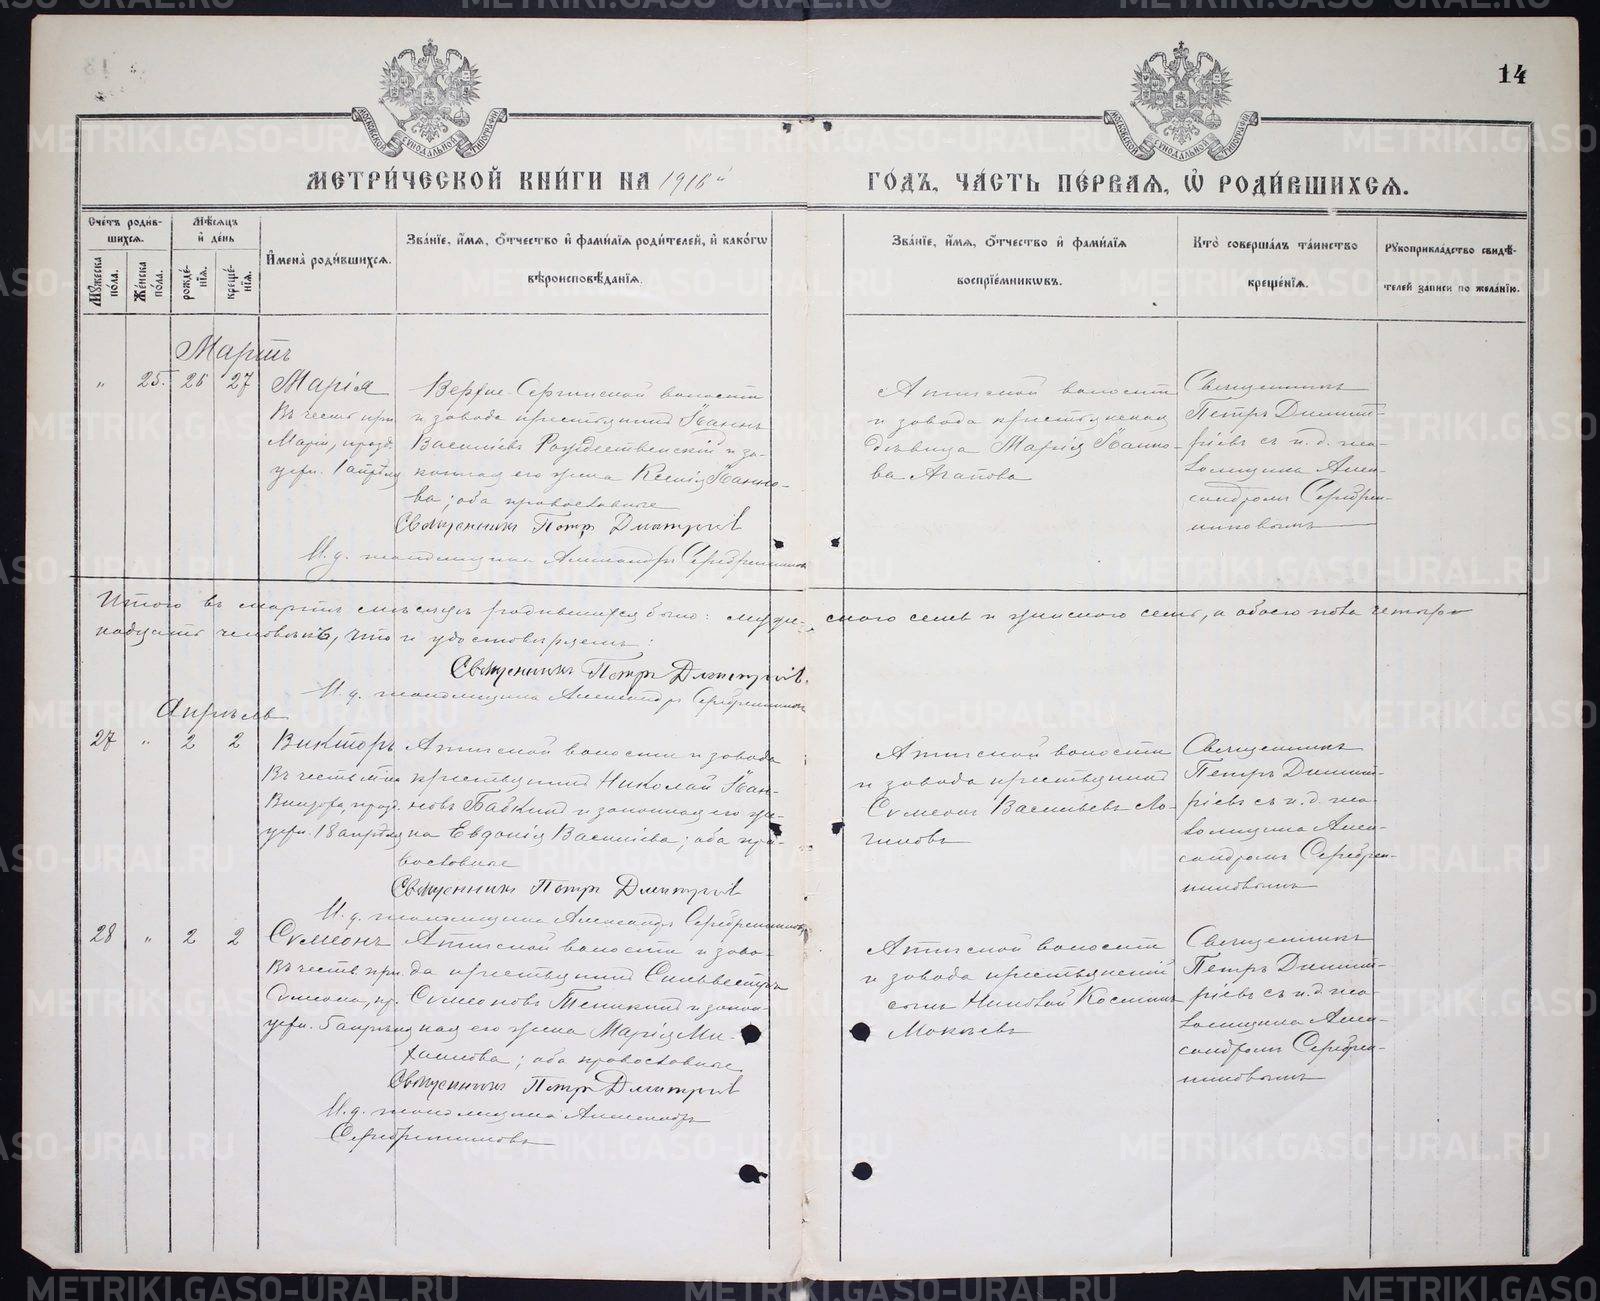 14
МОСКОВСКОЙ СѴНОДАЛЬНОЙ ТИПОГРАФІИ
МОСКОВСКОЙ СѴНОДАЛЬНОЙ ТИПОГРАФІИ
МЕТРИ́ЧЕСКОЙ КНИ́ГИ НА 1916 й ГО́ДЪ, ЧА́СТЬ ПЕ́РВАЯ, Ѡ҆ РОДИ́ВШИХСЯ.
Сче́тъ роди́вшихся.
Мѣ́сяцъ и҆ де́нь
Мꙋ́жеска по́ла.
Же́нска по́ла.
рожде́нїя.
креще́нїя.
И҆мена̀ роди́вшихся.
Зва́нїе, и҆́мя, ѻ҆́тчество и҆ фами́лїя роди́телей, и҆ како́гѡ
вѣроисповѣ́данїя.
Зва́нїе, и҆́мя, ѻ҆́тчество и҆ фами́лїя
воспрїе́мникѡвъ.
Кто̀ соверша́лъ та́инство
креще́нїя.
Рꙋкоприкла́дство свидѣ́телей записи по жела́нїю.
Мартъ
" 25. 26 27 Марія
Въ честь пр.
Маріи, празд.
церк. 1 апрѣля
Верхне-Сергинской волости
и завода крестьянинъ Іоаннъ
Васильевъ Рождественскій и за-
конная его жена Ксенія Іоанно-
ва; оба православные
Священникъ Петръ Дмитріевъ
И. д. псаломщика Александръ Серебренниковъ
Атигской волости
и завода крестьянская
дѣвица Марія Іоанно-
ва Агапова
Священникъ
Петръ Димит-
ріевъ съ и. д. пса-
ломщика Алек-
сандромъ Серебрен-
никовымъ
Итого въ мартѣ мѣсяцѣ родившихся было: муже-ского семь и женского семь, а обоего пола четыр-
надцать человѣкъ, что и удостовѣряемъ:
Священникъ Петръ Дмитріевъ.
И. д. псаломщика Александръ Серебренниковъ
Апрѣль
27 " 2 2 Викторъ
Въ честь м-ка
Виктора, празд.
церк. 18 апрѣля
Атигской волости и завода
крестьянинъ Николай Іоан-
новъ Бабкинъ и законная его же-
на Евдокія Васильева; оба пра-
вославные
Священникъ Петръ Дмитріевъ
И. д. псаломщика Александръ Серебренниковъ
Атигской волости
и завода крестьянинъ
Сѵмеонъ Васильевъ Ло-
гиновъ
Священникъ
Петръ Димит-
ріевъ съ и. д. пса-
ломщика Алек-
сандромъ Серебрен-
никовымъ
28 " 2 2 Сѵмеонъ
Въ честь пр.
Сѵмеона, пр.
церк. 5 апрѣля
Атигской волости и заво-
да крестьянинъ Сильвестръ
Сѵмеоновъ и закон-
ная его жена Марія Ми-
хаилова; оба православные
Священникъ Петръ Дмитріевъ
И. д. псаломщика Александръ
Серебренниковъ
Атигской волости
и завода крестьянскій
сынъ Николай
Священникъ
Петръ Димит-
ріевъ съ и. д. пса-
ломщика Алек-
сандромъ Серебрен-
никовымъ
METRIKI.GASO-URAL.RU